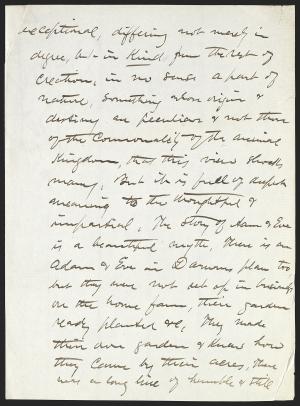 exceptional, differing not merely in
degree, but in kind from the rest of
Creation, in no sense a part of
nature, something whose origin &
destiny are peculiar & not those
of the Commonality of the animal
Kingdom, that this view shocks
many, But it is full of deepest
meaning to the thoughtful &
impartial, The story of Adam & Eve
is a beautiful myth, There is an
Adam & Eve in Darwins plan too
but they were not set up in business
on the home farm, their garden
ready planted &c, They made
their own garden & knew how
they came by their acres, There
was a long line of humble & still